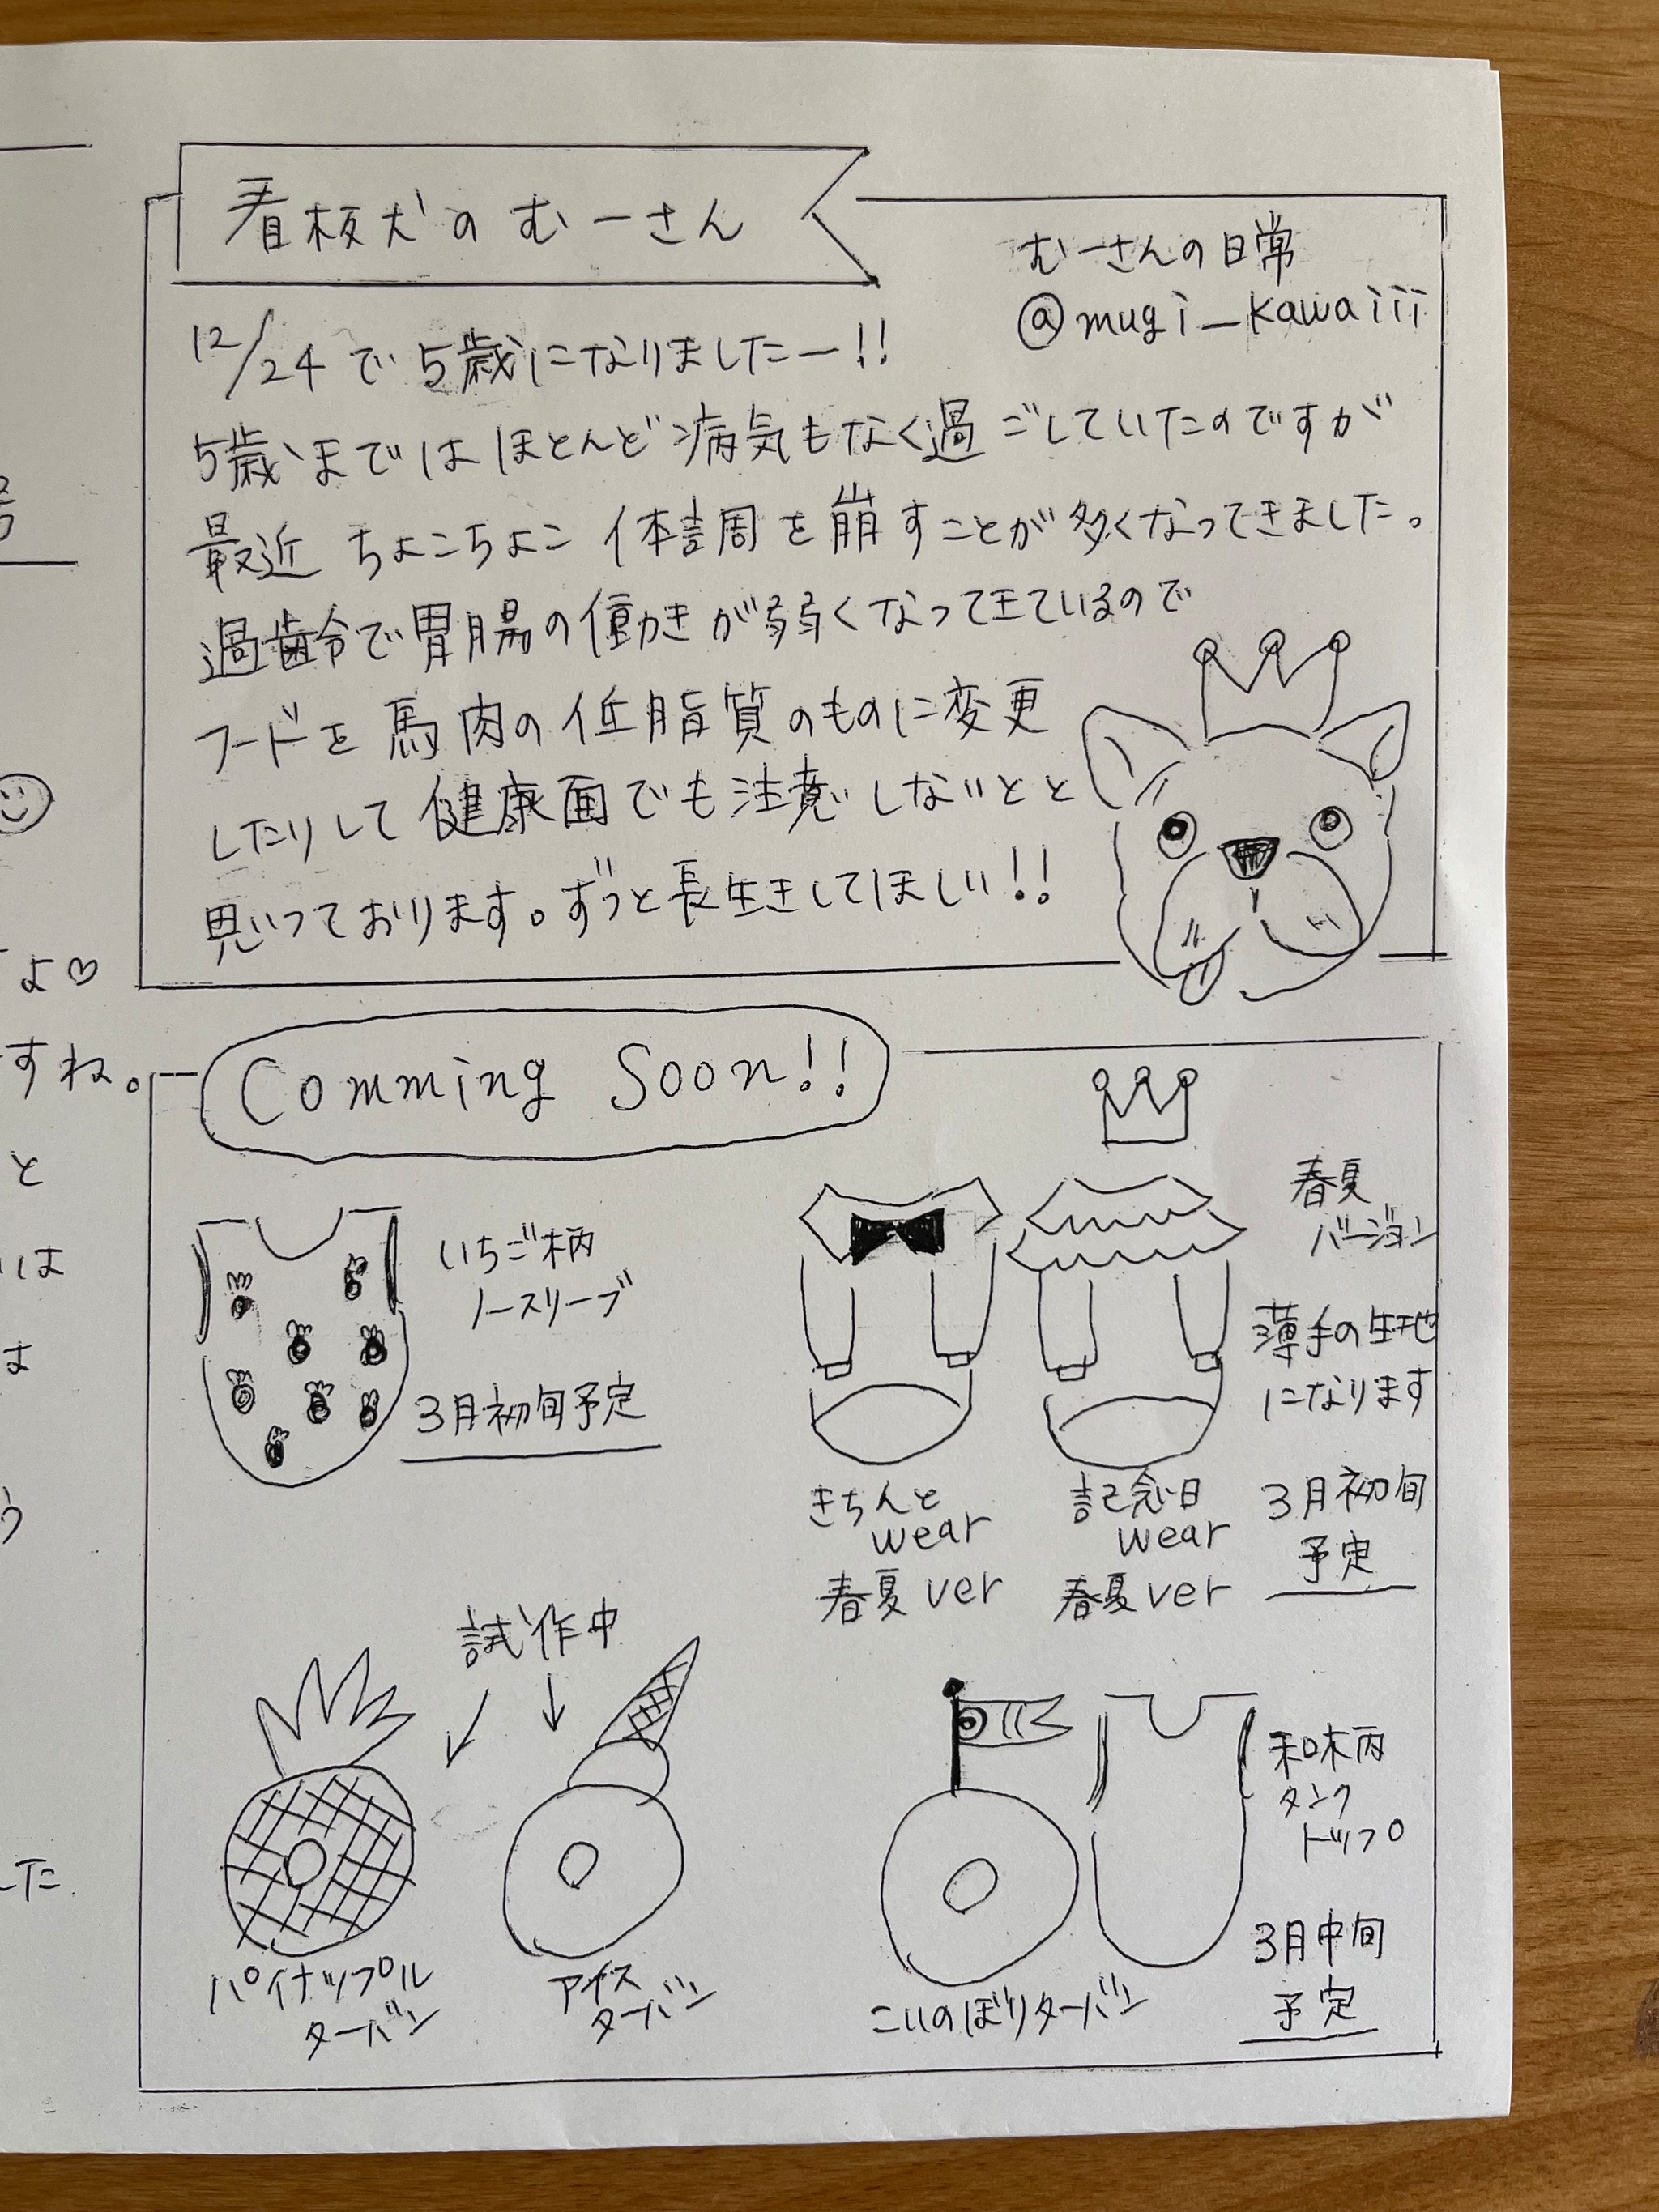 看板犬のむーさん
むーさんの日常
@mugi_kawaiii
12/24で5歳になりましたー!!
5歳まではほとんど病気もなく過ごしていたのですが
最近ちょこちょこ体調を崩すことが多くなってきました。
過齢で胃腸の働きが弱くなってきているので
フードを馬肉の低脂質のものに変更
したりして健康面でも注意しないとと
思っております。ずっと長生きしてほしい!!
よ♡
すね。
と
は
た
Comming Soon!!
いちご柄
ノースリーブ
3月初旬予定
春夏
バージョン
薄手の生地
になります
3月初旬
予定
きちんと
wear
春夏ver
記念日
wear
春夏ver
試作中
パイナップル
ターバン
アイス
ターバン
こいのぼりターバン
和柄
タンク
トップ
3月中旬
予定